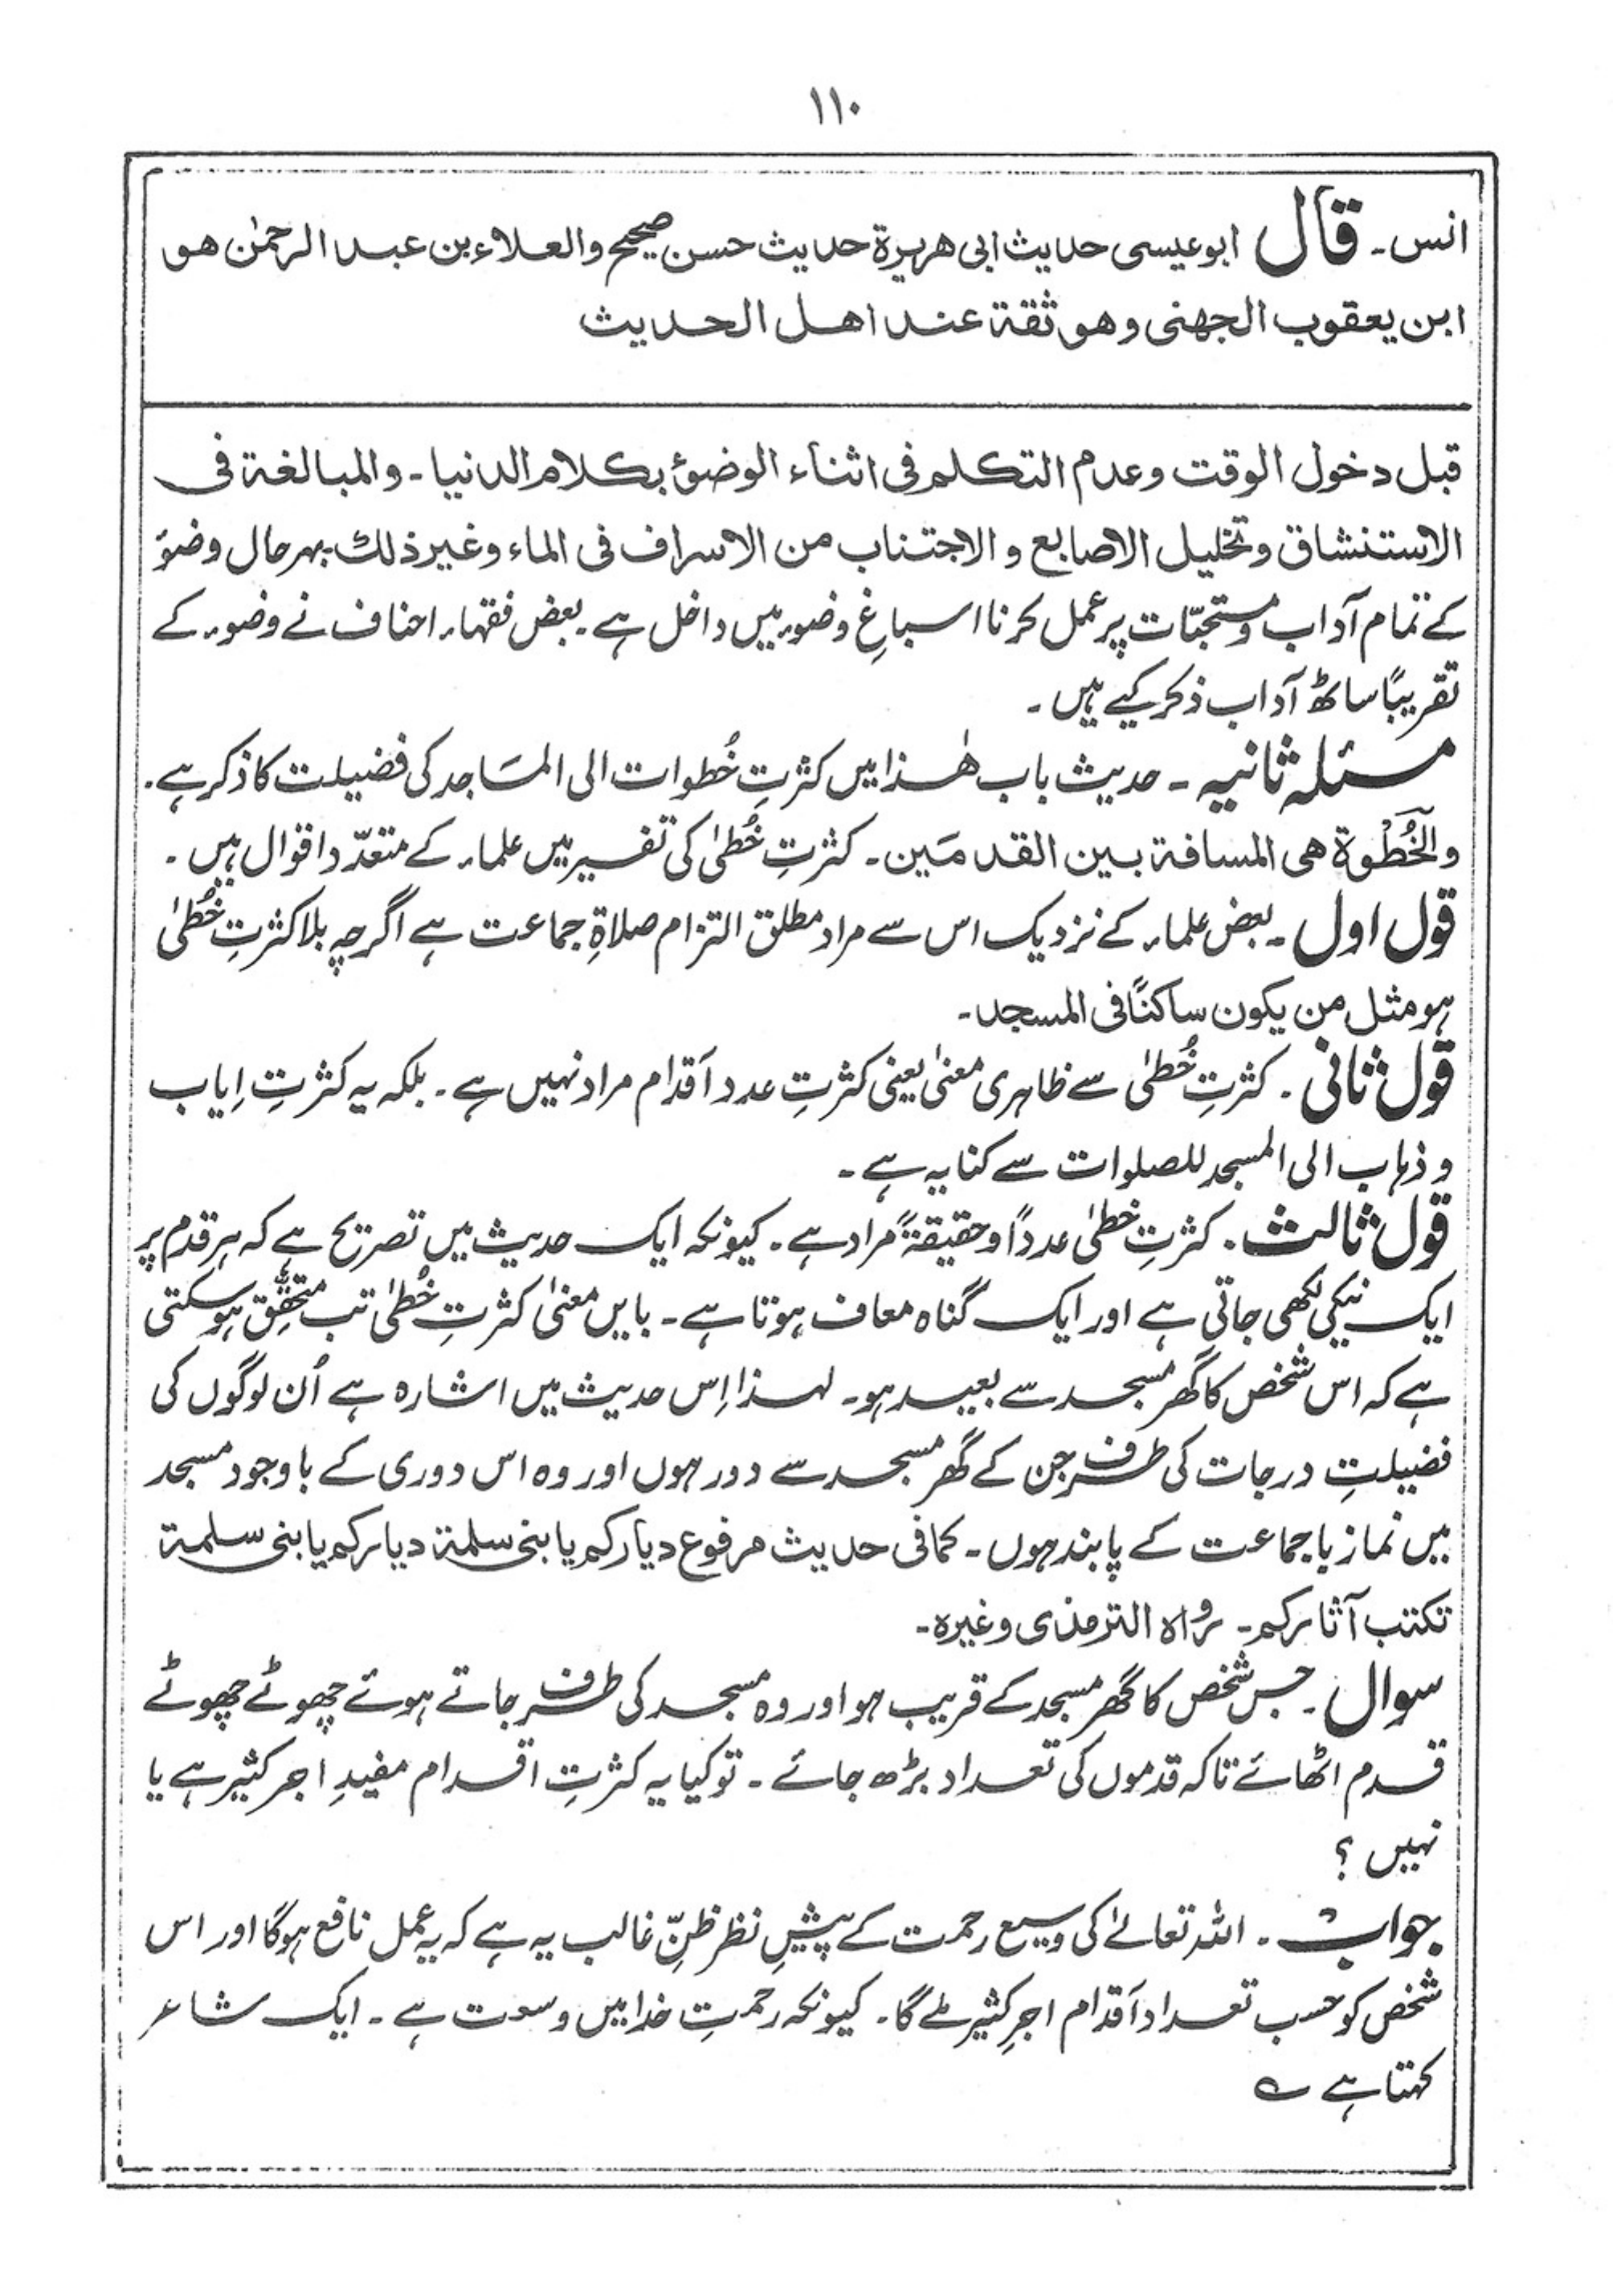 ۱۱۰
انس۔ قال ابوعیسی حدیث ابی ھریرة حدیث حسن صحیح والعلاء بن عبد الرحمٰن ھو
ابن یعقوب الجھنی وھو ثقة عند اھل الحدیث
قبل دخول الوقت وعدم التکلم فی اثناء الوضوٴ بکلام الدنیا۔ والمبالغة فی
الاستنشاق وتخلیل الاصابع والاجتناب من الاسراف فی الماء وغیر ذلك۔ بہرحال وضوٴ
کے تمام آداب و مستحبّات پر عمل کرنا اسباغِ وضوء میں داخل ہے۔ بعض فقہاء احناف نے وضوء کے
تقریبًا ساٹھ آداب ذکر کیے ہیں۔
مسئلہ ثانیہ۔ حدیث باب ھٰذا میں کثرتِ خُطوات الی المسَاجد کی فضیلت کا ذکر ہے۔
والخُطْوة ھی المسافة بین القدمَین۔ کثرتِ خُطیٰ کی تفسیر میں علماء کے متعدّد اقوال ہیں۔
قول اول۔ بعض علماء کے نزدیک اس سے مراد مطلق التزام صلاةِ جماعت ہے اگرچہ بلا کثرتِ خُطیٰ
ہو مثل من یکون ساکنًا فی المسجد۔
قول ثانی۔ کثرتِ خُطیٰ سے ظاہری معنیٰ یعنی کثرتِ عدد اَقدام مراد نہیں ہے۔ بلکہ یہ کثرتِ اِیاب
و ذہاب الی المسجد للصلوات سے کنایہ ہے۔
قول ثالث۔ کثرتِ خطیٰ عددًا و حقیقةً مراد ہے۔ کیونکہ ایک حدیث میں تصریح ہے کہ ہر قدم پر
ایک نیکی لکھی جاتی ہے اور ایک گناہ معاف ہوتا ہے۔ بایں معنیٰ کثرتِ خُطیٰ تب متحقِّق ہو سکتی
ہے کہ اس شخص کا گھر مسجد سے بعید ہو۔ لہذا اِس حدیث میں اشارہ ہے اُن لوگوں کی
فضیلتِ درجات کی طرف جن کے گھر مسجد سے دور ہوں اور وہ اس دوری کے باوجود مسجد
میں نماز باجماعت کے پابند ہوں۔ کما فی حدیث مرفوع دیارکم یا بنی سلمة دیارکم یا بنی سلمة
تکتب آثارکم۔ رواہ الترمذی وغیرہ۔
سوال۔ جس شخص کا گھر مسجد کے قریب ہو اور وہ مسجد کی طرف جاتے ہوئے چھوٹے چھوٹے
قدم اٹھائے تاکہ قدموں کی تعداد بڑھ جائے۔ تو کیا یہ کثرتِ اقدام مفیدِ اجر کثیر ہے یا
نہیں ؟
جواب۔ اللہ تعالےٰ کی وسیع رحمت کے پیشِ نظر ظنِّ غالب یہ ہے کہ یہ عمل نافع ہوگا اور اس
شخص کو حسب تعداد اَقدام اجرِ کثیر ملے گا۔ کیونکہ رحمتِ خدا میں وسعت ہے۔ ایک شاعر
کہتا ہے ؎